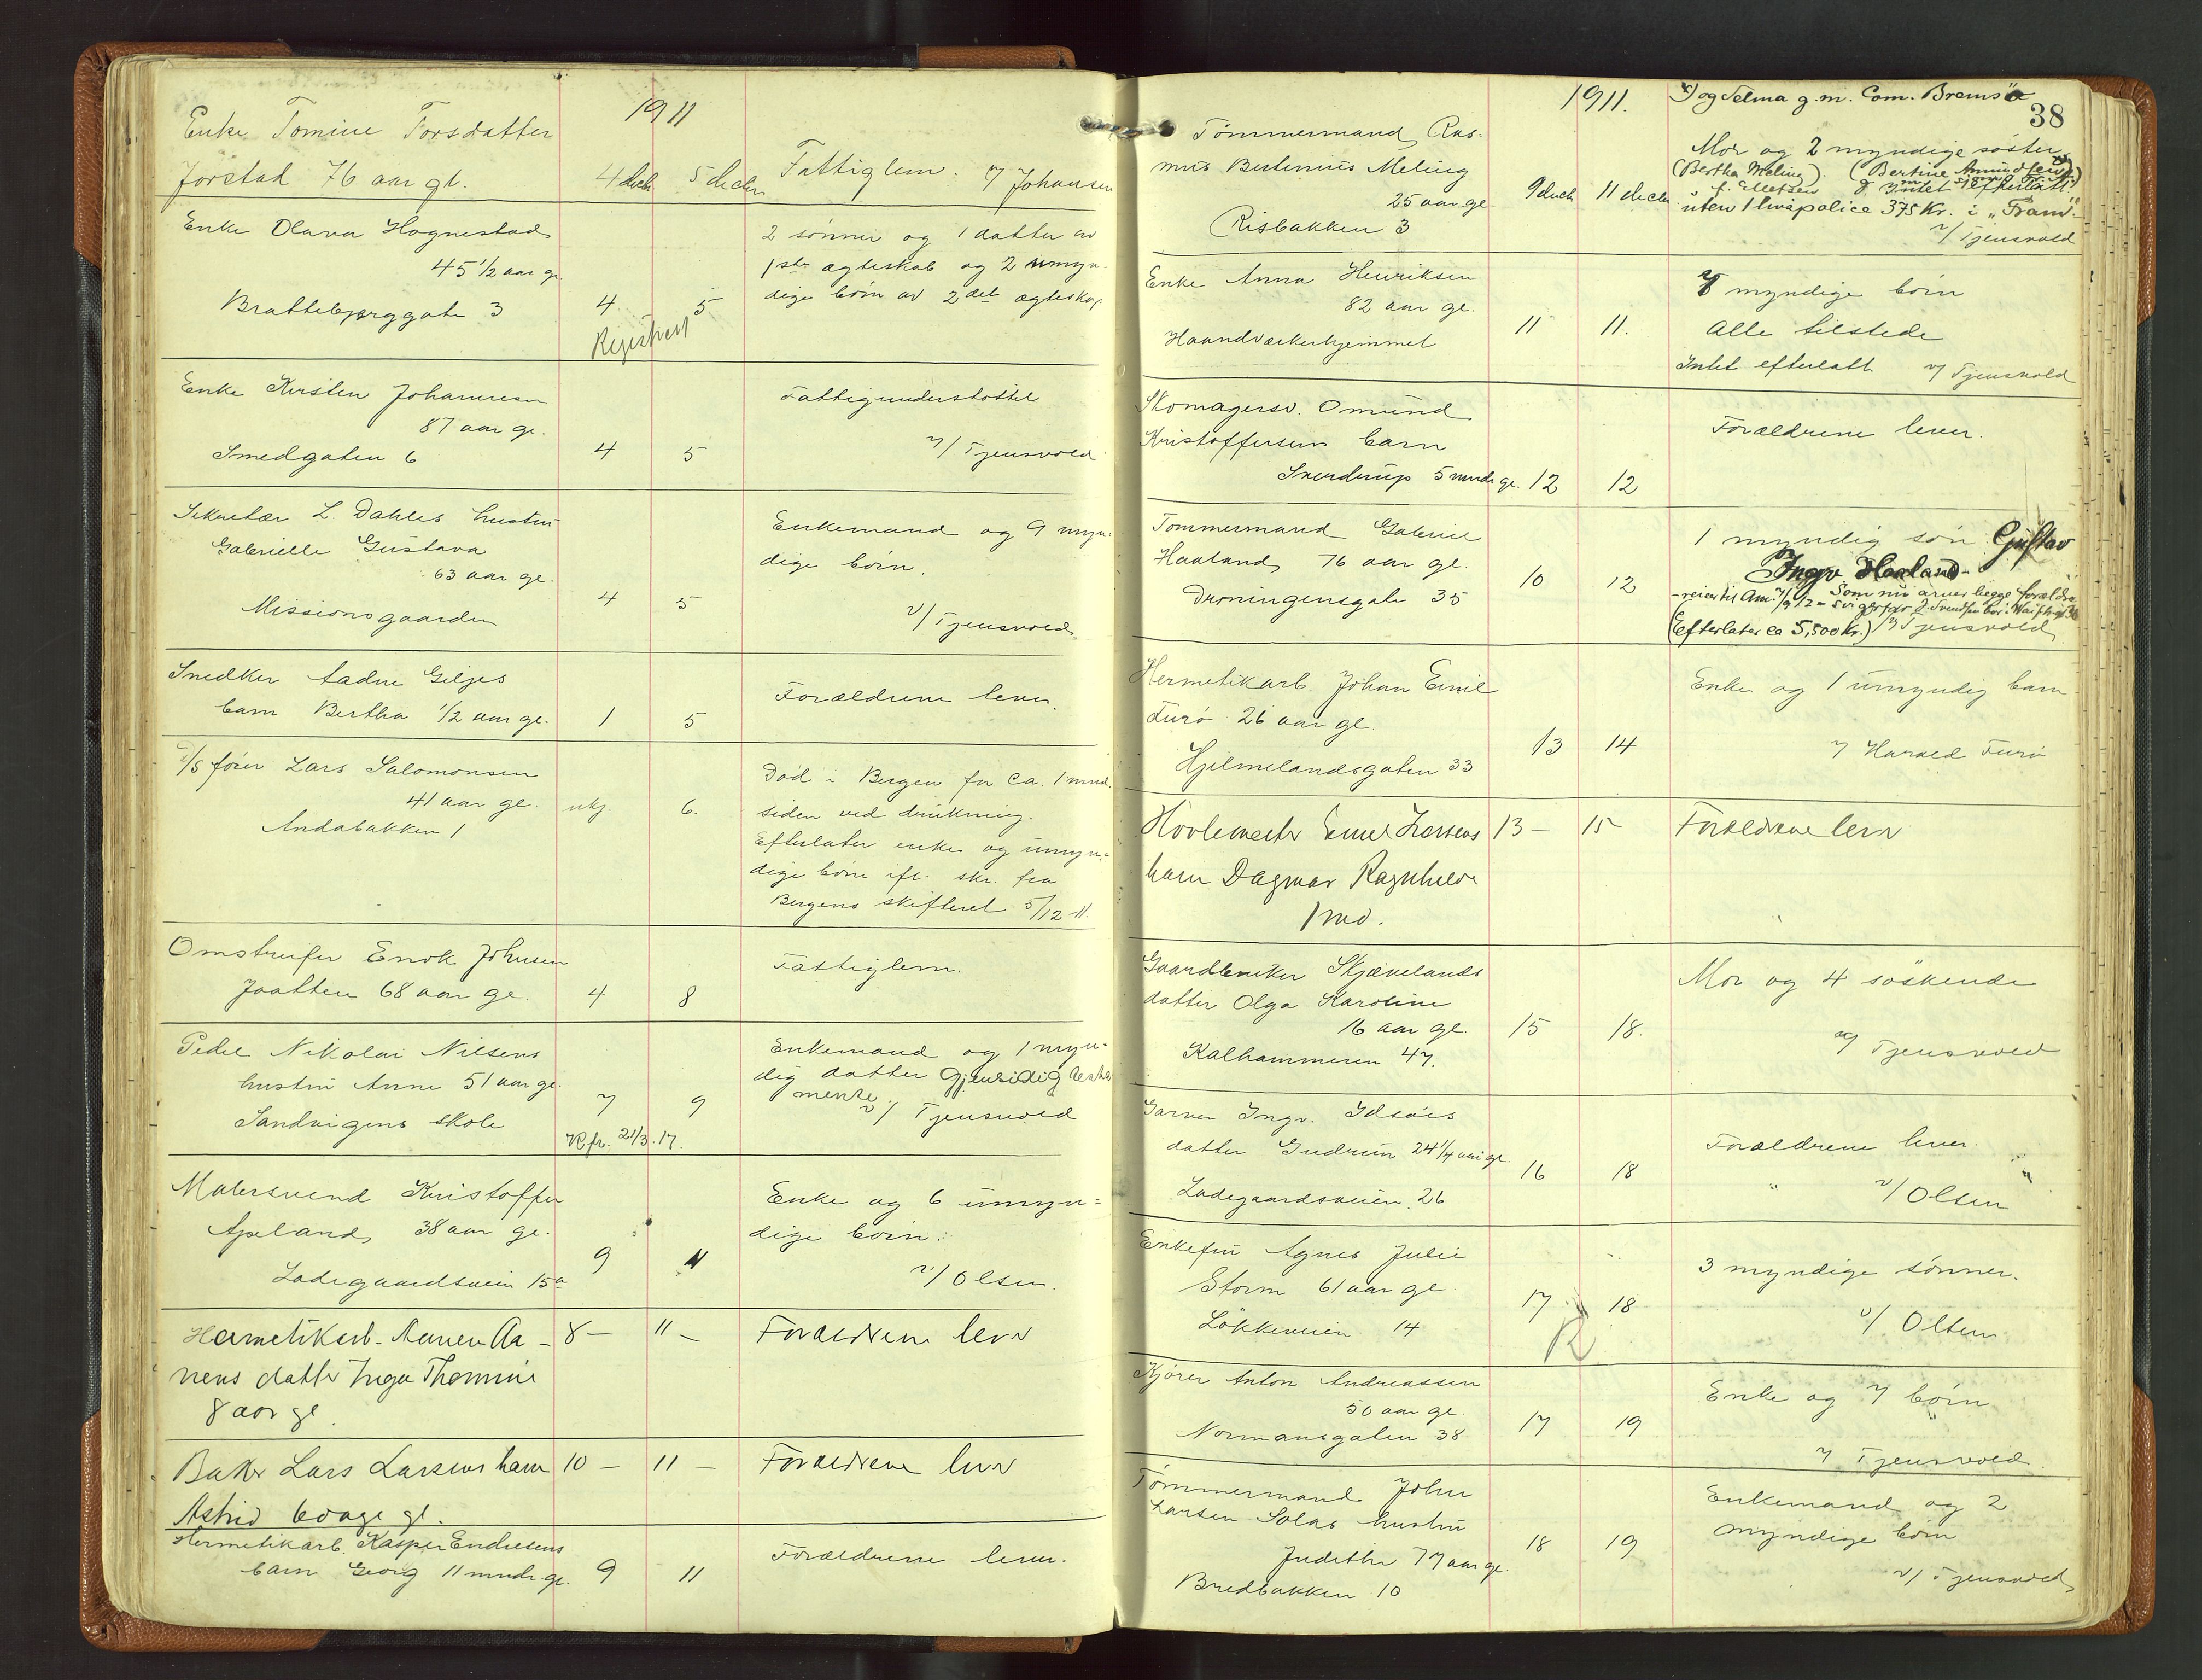 1911
Enke Tomine Torsdatter
Jorstad 76 aar gl. 4 decb. 5 decbr. Fattiglem. v/ Johansen
Enke Olava Hognestad 2 sønner og 1 datter av
45 1/2 aar gl. 1ste ægteskab og 2 umyn-
Brattebjerggate 3 4 5 dige børn av 2det ægteskap
Registrert
Enke Kirsten Johannesen Fattigunderstøttet
87 aar gl.
Smedgaten 6 4 5 v/ Tjensvold
Sekretær L. Dahles hustru Enkemand og 9 myn-
Gabrielle Gustava dige børn.
63 aar gl.
Missionsgaarden 4 5 v/ Tjensvold
Snedker Aadne Giljes Forældrene lever.
barn Bertha 1/2 aar gl. 1 5
D/S fører Lars Salomonsen Død i Bergen for ca. 1 mnd.
41 aar gl. ukj. 6. siden ved drukning.
Andabakken 1 Efterlater enke og umyn-
dige børn ifl. skr. fra
Bergens skifteret 5/12-11.
Omstreifer Enok Johnsen Fattiglem.
Jaatten 68 aar gl. 4 8
Pedel Nikolai Nilsens Enkemand og 1 myn-
hustru Anne 51 aar gl. dig datter Gjensidig testa
Sandvigens skole 7 9 mente. v/ Tjensvold
Kfr. 21/3-17.
Malersvend Kristoffer Enke og 6 umyn-
Apeland 38 aar gl. dige børn.
Ladegaardsveien 15a 9 11 v/ Olsen.
Hermetikarb. Aanen Aa- 8 — 11 — Forældrene lever
nens datter Inga Thomine
8 aar gl.
Baker Lars Larsens barn 10 — 11 — Forældrene lever
Astrid 6 dage gl.
Hermetikarb. Kasper Endresens Forældrene lever.
barn Georg 11 mndr. gl. 9 11
1911. og Selma g.m. Com. Bremsö
38
Tømmermand Ras- Mor og 2 myndige søstre
mus Bertenius Meling (Bertha Meling). (Bertine Amundsen)
25 aar gl. 9 decb. 11 decbr. Intet efterlatt
Risbakken 3 uten 1 livspolice 375 Kr. i „Fram".
v/ Tjensvold
Enke Anna Henriksen 8 myndige børn
82 aar gl. Alle tilstede
Haandverkerhjemmet 11 11. Intet efterlatt v/ Tjensvold
Skomagersv. Omund Forældrene lever.
Kristoffersens barn
Sverdrup 5 mndr. gl. 12 12
Tømmermand Gabriel 1 myndig søn Gustav
Haaland 76 aar gl. Ingv Haaland
Dronningensgate 35 10 12 som nu arver begge forældre
(Efterlater ca 5,500 Kr.) v/ Tjensvold
Hermetikarb. Johan Emil Enke og 1 umyndig barn
Furø 26 aar gl.
Hjelmelandsgaten 33 13 14 v/ Harald Furø
Høvlemester Emil Larsens 13 — 15 Forældrene lever
barn Dagmar Ragnhild
1 md.
Gaardbruker Skjævelands Mor og 4 søskende
datter Olga Karoline
16 aar gl. 15 18.
Kalhammeren 47. v/ Tjensvold
Garver Ingv. Idsøes Forældrene lever.
datter Gudrun 24 1/4 aar gl. 16 18
Ladegaardsveien 26 v/ Olsen
Enkefru Agnes Julie 3 myndige sønner.
Storm 61 aar gl. 17 18
Løkkeveien 14 v/ Olsen
R
Kjører Anton Andreassen Enke og 7 børn
50 aar gl.
Normansgaten 38 17 19 v/ Tjensvold
Tømmermand John Enkemand og 2
Larsen Solas hustru myndige børn
Judithe 77 aar gl. 18 19
Bredbakken 10 v/ Tjensvold